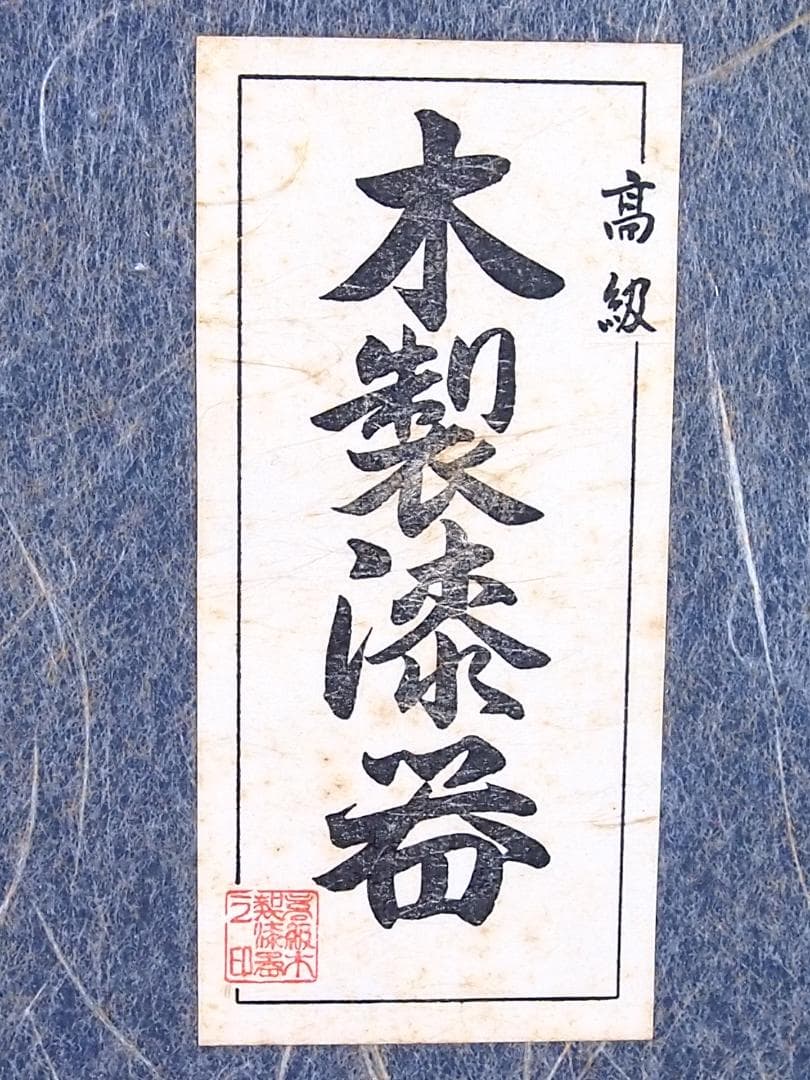 高級
木製漆器
高級木
製漆器
之印